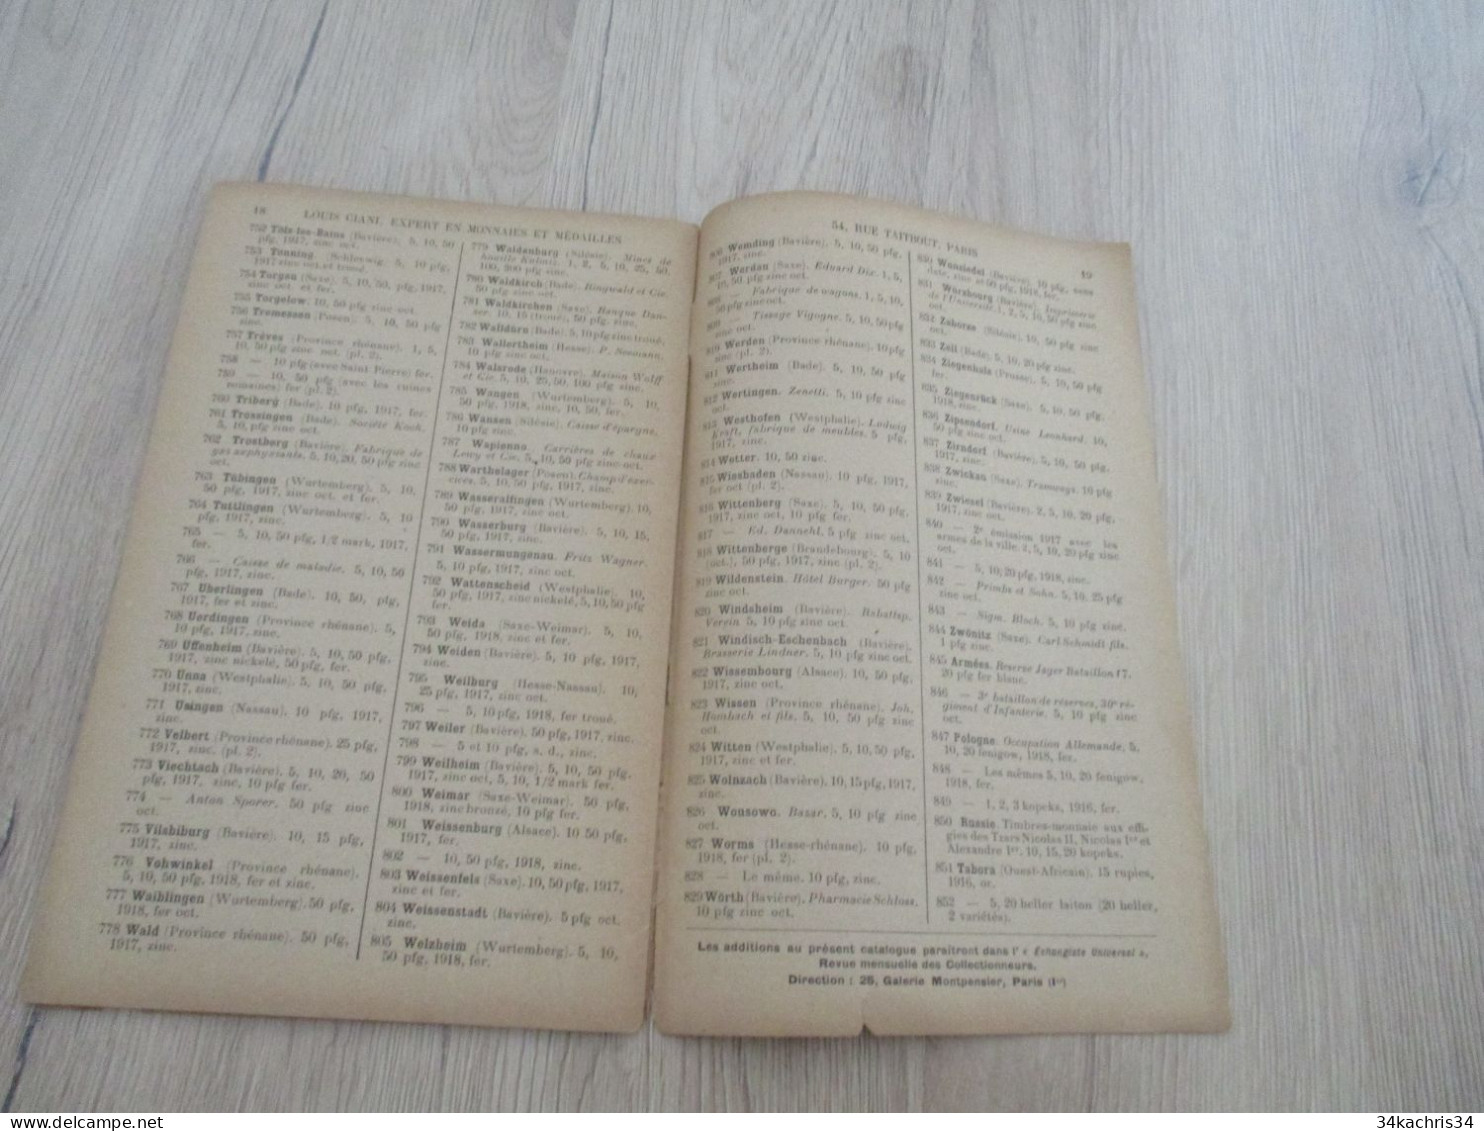 18 LOUIS CIANI, EXPERT EN MONNAIES ET MÉDAILLES
752 Tölz-les-Bains (Bavière). 5, 10, 50
pfg, 1917, zinc oct.
753 Tönning. Schleswig. 5, 10 pfg,
1917 zinc oct. et troué.
754 Torgau (Saxe). 5, 10, 50, pfg, 1917,
zinc oct. et fer.
755 Torgelow. 10, 50 pfg zinc oct.
756 Tremessen (Posen). 5, 10, 50 pfg
zinc.
757 Trèves (Province rhénane). 1, 5,
10, 50 pfg zinc oct. (pl. 2).
758 — 10 pfg (avec Saint Pierre) fer.
759 — 10, 50 pfg (avec les ruines
romaines) fer (pl. 2).
760 Triberg (Bade). 10 pfg, 1917, fer.
761 Trossingen (Bade). Société Koch.
5, 10, 50 pfg zinc oct.
762 Trostberg (Bavière). Fabrique de
gaz asphyxiants. 5, 10, 20, 50 pfg zinc
oct.
763 Tübingen (Wurtemberg). 5, 10,
50 pfg, 1917, zinc oct. et fer.
764 Tuttlingen (Wurtemberg). 5, 10
pfg, 1917, zinc.
765 — 5, 10, 50 pfg, 1/2 mark, 1917,
fer.
766 — Caisse de maladie. 5, 10, 50
pfg, 1917, zinc.
767 Uberlingen (Bade). 10, 50, pfg,
1917, fer et zinc.
768 Uerdingen (Province rhénane). 5,
10 pfg, 1917, zinc.
769 Uffenheim (Bavière). 5, 10, 50 pfg,
1917, zinc nickelé, 50 pfg, fer.
770 Unna (Westphalie). 5, 10, 50 pfg,
1917, zinc.
771 Usingen (Nassau). 10 pfg, 1917,
zinc.
772 Velbert (Province rhénane). 25 pfg,
1917, zinc. (pl. 2).
773 Viechtach (Bavière). 5, 10, 20, 50
pfg, 1917, zinc, 10 pfg fer.
774 — Anton Sporer. 50 pfg zinc
oct.
775 Vilsbiburg (Bavière). 10, 15 pfg,
1917, zinc.
776 Vohwinkel (Province rhénane).
5, 10, 50 pfg, 1918, fer et zinc.
777 Waiblingen (Wurtemberg). 50 pfg,
1918, fer oct.
778 Wald (Province rhénane). 50 pfg,
1917, zinc.
779 Waldenburg (Silésie). Mines de
houille 1, 2, 5, 10, 25, 50,
100, 300 pfg zinc.
780 Waldkirch (Bade). Ringwald et Cie.
50 pfg zinc oct.
781 Waldkirchen (Saxe). Banque Dan-
ser. 10, 15 (troué), 50 pfg, zinc.
782 Walldürn (Bade). 5, 10 pfg zinc troué.
783 Wallertheim (Hesse). P. Neumann.
10 pfg zinc oct.
784 Walsrode (Hanovre). Maison Wolff
et Cie. 5, 10, 25, 50, 100 pfg zinc.
785 Wangen (Wurtemberg). 5, 10,
50 pfg, 1918, zinc, 10, 50, fer.
786 Wansen (Silésie). Caisse d'épargne.
10 pfg zinc oct.
787 Wapienno. Carrières de chaux
Levy et Cie. 5, 10, 50 pfg zinc oct.
788 Warthelager (Posen). Champ d'exer-
cices. 5, 10, 50 pfg, 1917, zinc.
789 Wasseralfingen (Wurtemberg). 10,
50 pfg, 1917, zinc oct.
790 Wasserburg (Bavière). 5, 10, 15,
50 pfg, 1917, zinc.
791 Wassermungenau. Fritz Wagner.
5, 10 pfg, 1917, zinc oct.
792 Wattenscheid (Westphalie). 10,
50 pfg, 1917, zinc nickelé, 5, 10, 50 pfg
fer.
793 Weida (Saxe-Weimar). 5, 10,
50 pfg, 1918, zinc et fer.
794 Weiden (Bavière). 5, 10 pfg, 1917,
zinc.
795 Weilburg (Hesse-Nassau). 10,
25 pfg, 1917, zinc oct.
796 — 5, 10 pfg, 1918, fer troué.
797 Weiler (Bavière). 50 pfg, 1917, zinc.
798 — 5 et 10 pfg, s. d., zinc.
799 Weilheim (Bavière). 5, 10, 50 pfg,
1917, zinc oct, 5, 10, 1/2 mark fer.
800 Weimar (Saxe-Weimar). 50 pfg,
1918, zinc bronzé, 10 pfg fer.
801 Weissenburg (Alsace). 10 50 pfg,
1917, fer.
802 — 10, 50 pfg, 1918, zinc.
803 Weissenfels (Saxe). 10, 50 pfg, 1917,
zinc et fer.
804 Weissenstadt (Bavière). 5 pfg oct.
zinc.
805 Welzheim (Wurtemberg). 5, 10,
50 pfg, 1918, fer.
54, RUE TAITBOUT, PARIS 19
806 Wemding (Bavière). 5, 10, 50 pfg,
1917, zinc.
807 Werdau (Saxe). Eduard Dix. 1, 5,
10, 50 pfg zinc oct.
808 — Fabrique de wagons. 1, 5, 10,
50 pfg zinc oct.
809 — Tissage Vigogne. 5, 10, 50 pfg
zinc oct.
810 Werden (Province rhénane). 10 pfg
zinc (pl. 2).
811 Wertheim (Bade). 5, 10, 50 pfg
zinc.
812 Wertingen. Zenetti. 5, 10 pfg zinc
oct.
813 Westhofen (Westphalie). Ludwig
Kraft, fabrique de meubles. 5 pfg,
1917, zinc.
814 Wetter. 10, 50 zinc.
815 Wiesbaden (Nassau). 10 pfg, 1917,
fer oct (pl. 2).
816 Wittenberg (Saxe). 5, 10, 50 pfg,
1917, zinc oct, 10 pfg fer.
817 — Ed. Dannehl. 5 pfg zinc oct.
818 Wittenberge (Brandebourg). 5, 10
(oct.), 50 pfg, 1917, zinc (pl. 2).
819 Wildenstein. Hôtel Burger. 50 pfg
zinc oct.
820 Windsheim (Bavière). Rabattsp.
Verein. 5, 10 pfg zinc oct.
821 Windisch-Eschenbach (Bavière).
Brasserie Lindner. 5, 10 pfg zinc oct.
822 Wissembourg (Alsace). 10, 50 pfg,
1917, zinc oct.
823 Wissen (Province rhénane). Joh.
Hombach et fils. 5, 10, 50 pfg zinc
oct.
824 Witten (Westphalie). 5, 10, 50 pfg,
1917, zinc et fer.
825 Wolnzach (Bavière). 10, 15 pfg, 1917,
zinc.
826 Wousowo. Bazar. 5, 10 pfg zinc
oct.
827 Worms (Hesse-rhénane). 10 pfg,
1918, fer (pl. 2).
828 — Le même. 10 pfg, zinc.
829 Wörth (Bavière). Pharmacie Schloss.
10 pfg zinc oct.
830 Wunsiedel (Bavière). 10 pfg, sans
date, zinc et 50 pfg, 1918, fer.
831 Wurzbourg (Bavière). Imprimerie
de l'Université. 1, 2, 5, 10, 50 pfg zinc
oct.
832 Zaborze (Silésie). 10, 50 pfg zinc
oct.
833 Zell (Bade). 5, 10, 20 pfg zinc.
834 Ziegenhals (Prusse). 5, 10, 50 pfg
fer.
835 Ziegenrück (Saxe). 5, 10, 50 pfg,
1918, zinc.
836 Zipsendorf. Usine Leonhard. 10,
50 pfg zinc oct.
837 Zirndorf (Bavière). 5, 10, 50 pfg,
1917, zinc.
838 Zwickau (Saxe). Tramways. 10 pfg
zinc.
839 Zwiesel (Bavière). 2, 5, 10, 20 pfg,
1917, zinc oct.
840 — 2e émission 1917 avec les
armes de la ville. 2, 5, 10, 20 pfg zinc
oct.
841 — 5, 10, 20 pfg, 1918, zinc.
842 — Primbs et Sohn. 5, 10, 25 pfg
zinc oct.
843 — Sigm. Bloch. 5, 10 pfg zinc.
844 Zwönitz (Saxe). Carl Schmidt fils.
1 pfg zinc.
845 Armées. Reserve Jager Bataillon 17.
20 pfg fer blanc.
846 — 3e bataillon de réserves, 30e ré-
giment d'Infanterie. 5, 10 pfg zinc
oct.
847 Pologne. Occupation Allemande. 5,
10, 20 fenigow, 1918, fer.
848 — Les mêmes 5, 10, 20 fenigow,
1918, fer.
849 — 1, 2, 3 kopeks, 1916, fer.
850 Russie. Timbres-monnaie aux effi-
gies des Tzars Nicolas II, Nicolas Ier et
Alexandre Ier. 10, 15, 20 kopeks.
851 Tabora (Ouest-Africain). 15 rupies,
1916, or.
852 — 5, 20 heller laiton (20 heller,
2 variétés).
Les additions au présent catalogue paraîtront dans l' « Echangiste Universel »,
Revue mensuelle des Collectionneurs.
Direction : 25, Galerie Montpensier, Paris (Ier)
34kachris34